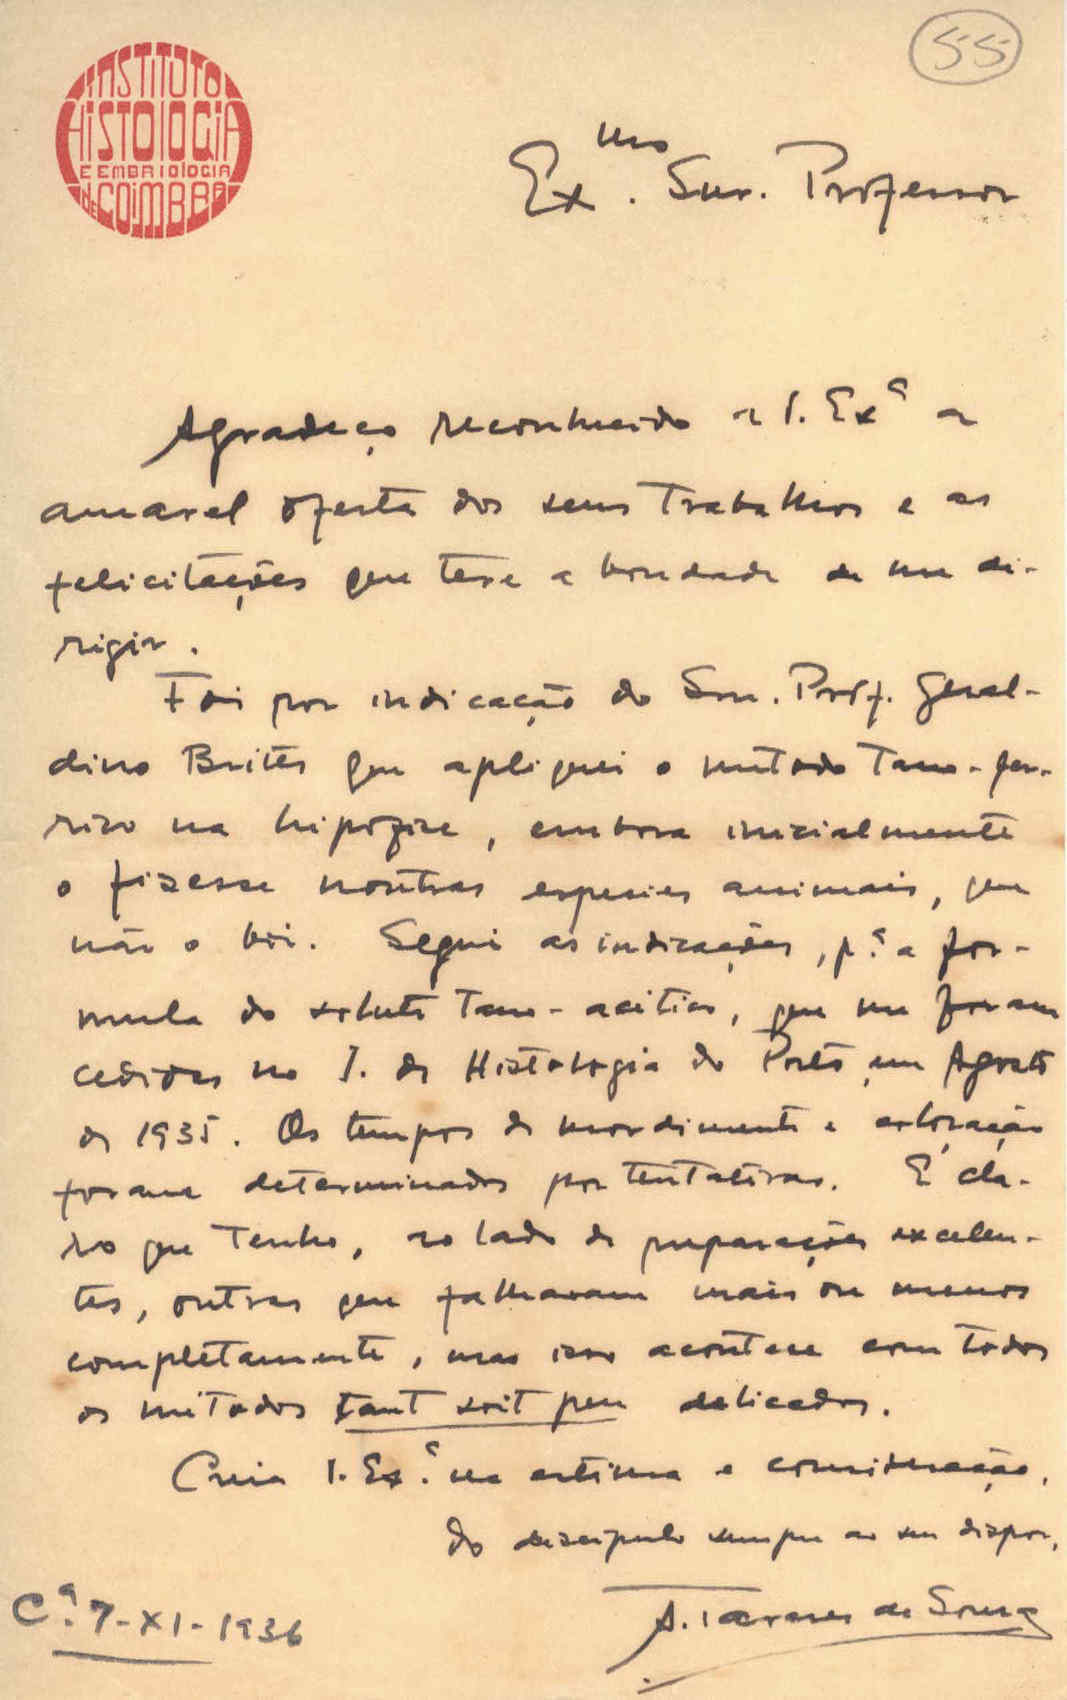 INSTITUTO
HISTOLOGIA
E EMBRIOLOGIA
DE COIMBRA
55
Ex.mo Snr. Professor
Agradeço reconhecido a V. Exª a
amavel oferta dos seus trabalhos e as
felicitações que teve a bondade de me di-
rigir.
Foi por indicação do Snr. Prof. Geral-
dino Brites que apliquei o metodo Tano-fer-
rico na hipófise, embora inicialmente
o fizesse noutras especies animais, que
não o boi. Segui as indicações, p.ª a for-
mula do soluto Tano-acético, que me foram
cedidas no I. de Histologia do Porto em Agosto
de 1935. Os tempos de mordimento e coloração
foram determinados por tentativas. É cla-
ro que tenho, ao lado de preparações excelen-
tes, outras que falharam mais ou menos
completamente, mas isso acontece com todos
os métodos tant soit peu delicados.
Creia V. Ex.ª na estima e consideração,
do discipulo sempre ao seu dispor,
A. Tavares de Sousa
C.ª 7-XI-1936